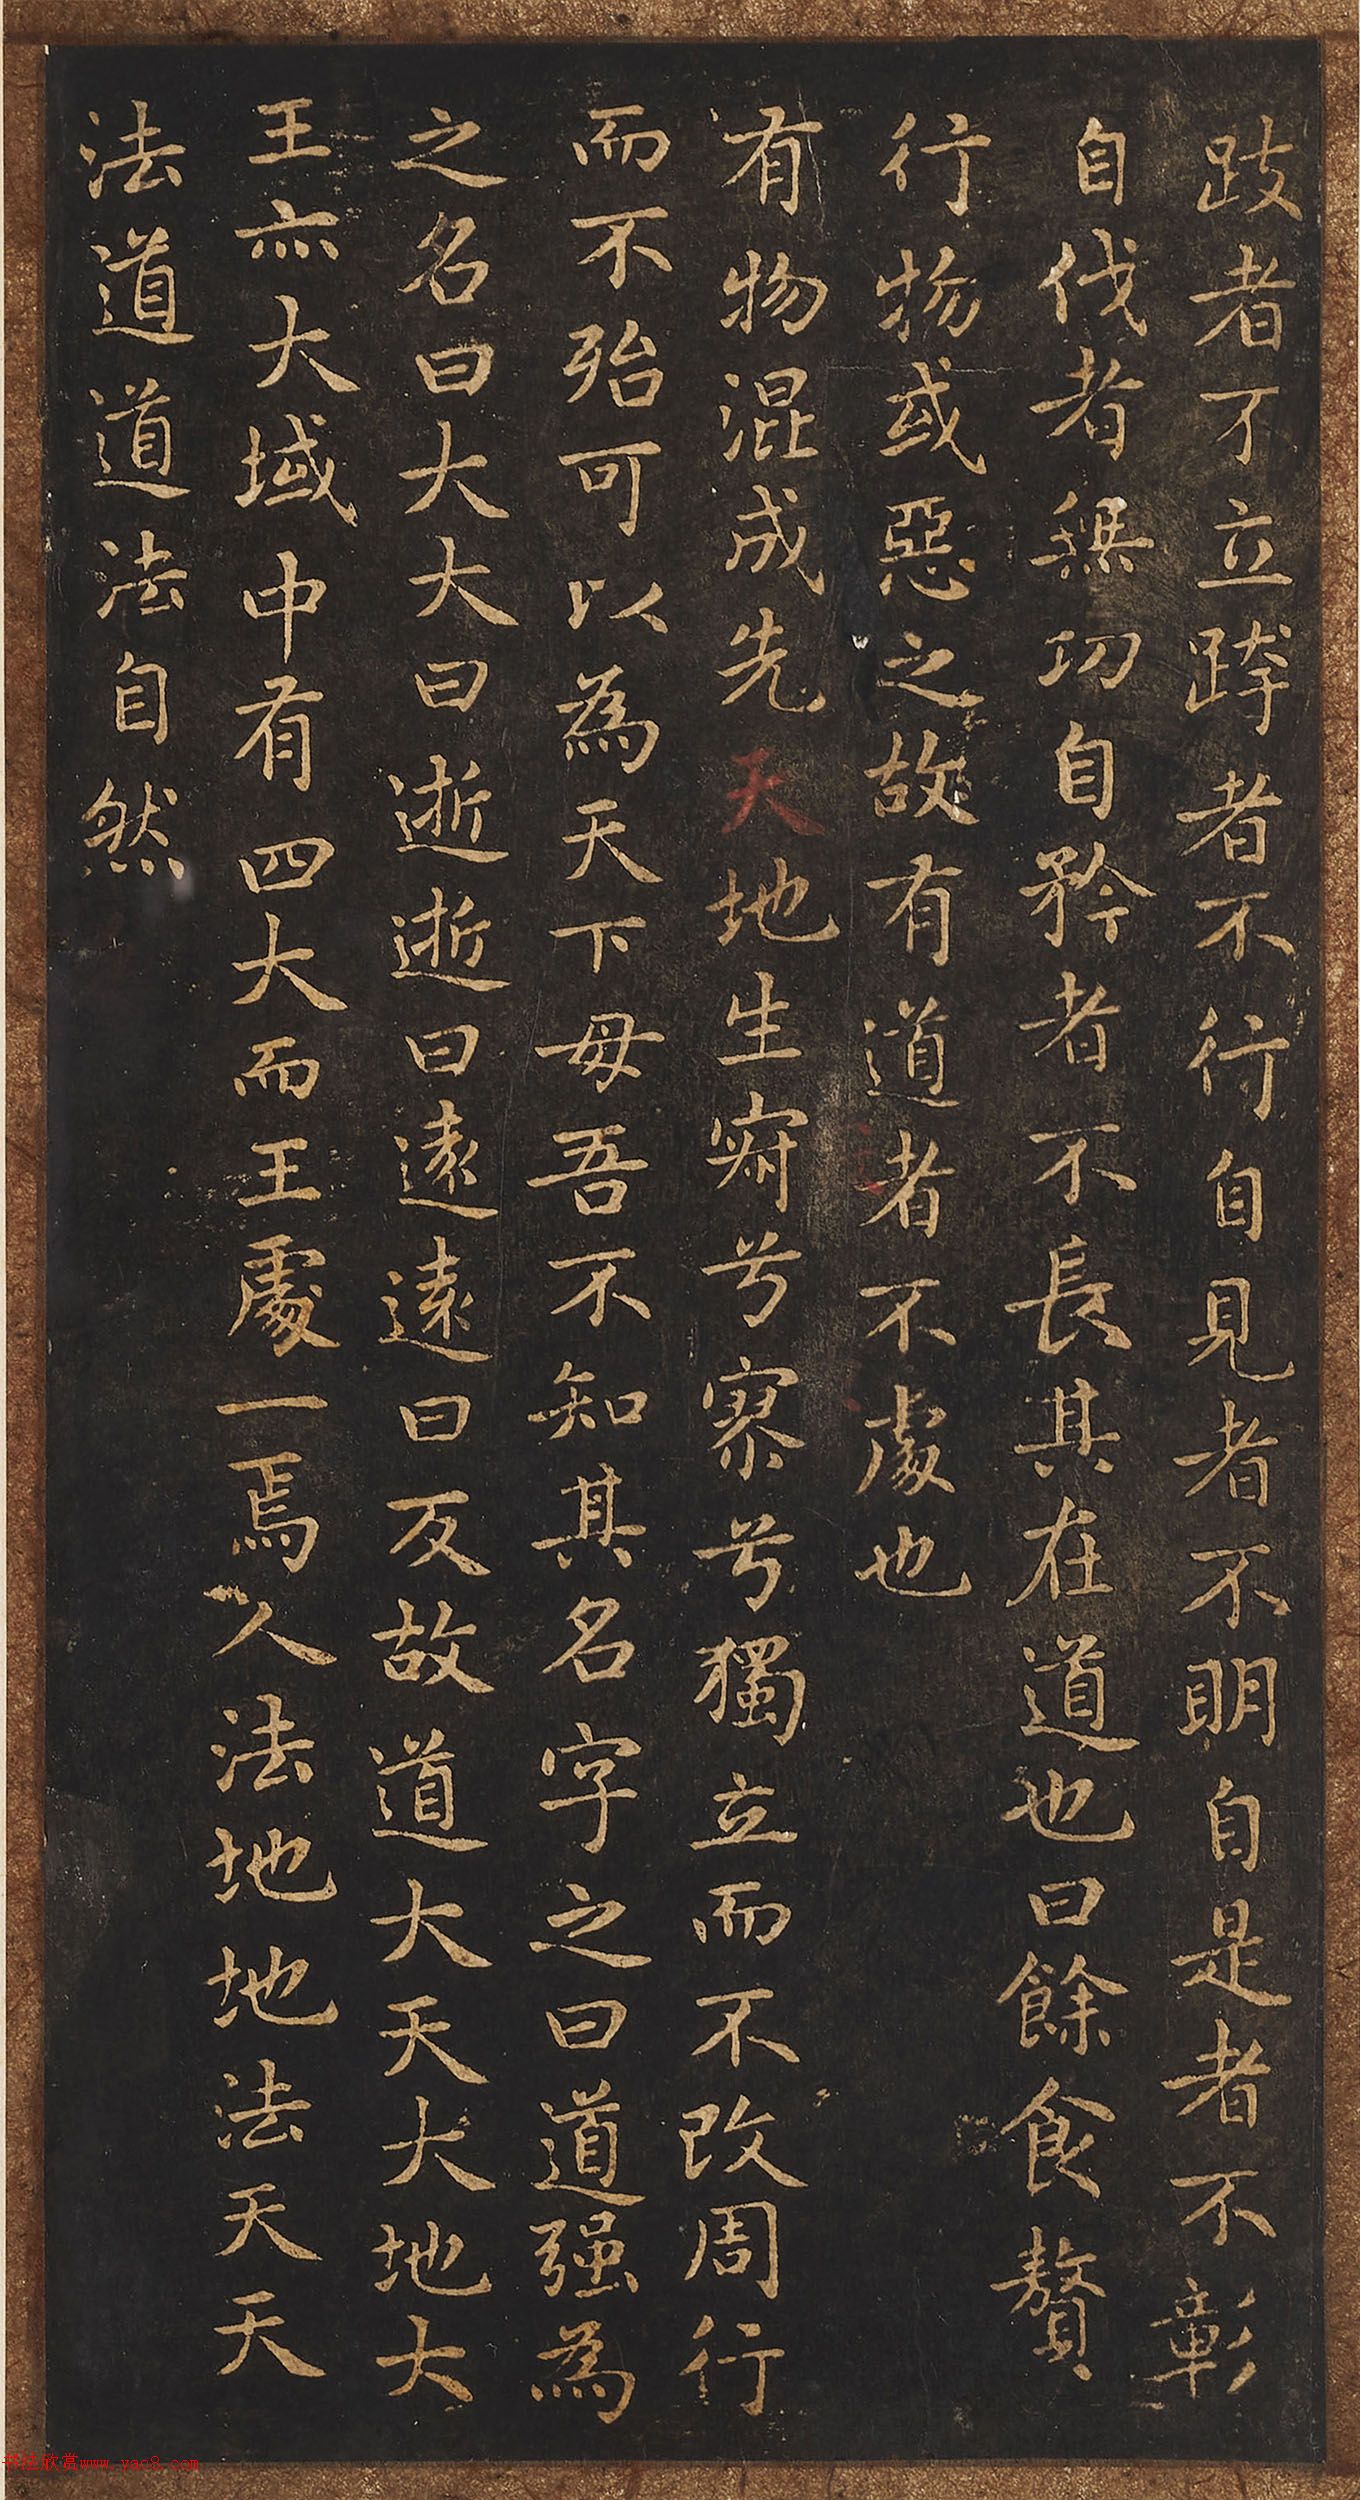 跂者不立跨者不行自見者不明自是者不彰
自伐者無功自矜者不長其在道也曰餘食贅
行物或惡之故有道者不處也
有物混成先天地生寂兮寥兮獨立而不改周行
而不殆可以為天下母吾不知其名字之曰道强為
之名曰大大曰逝逝曰遠遠曰反故道大天大地大
王亦大域中有四大而王處一焉人法地地法天天
法道道法自然
书法欣赏www.yac8.com